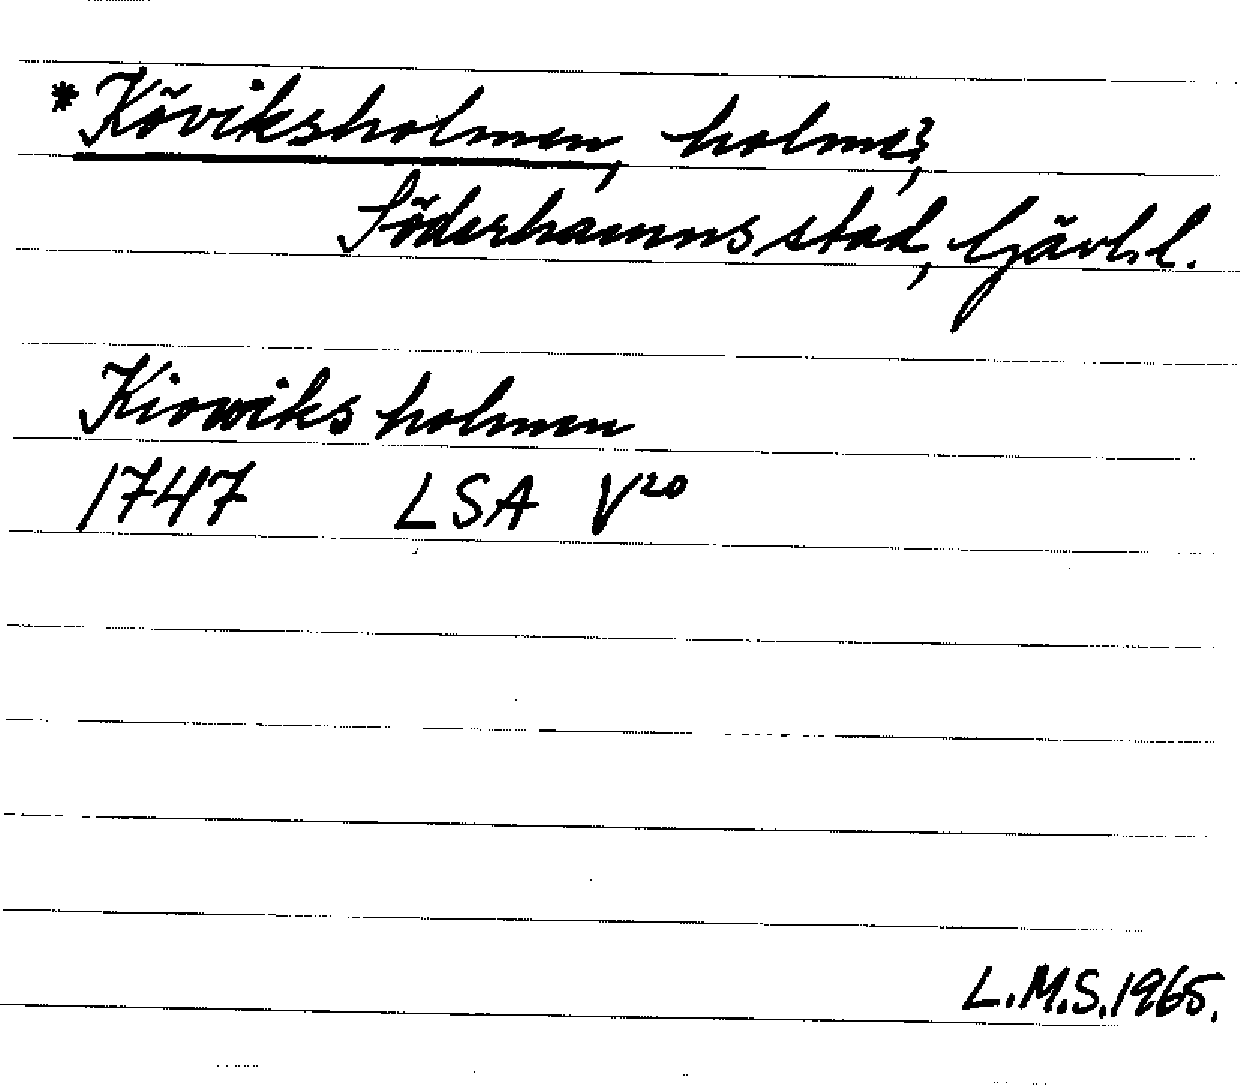 *Köviksholmen, holme?,
Söderhamns stad, Gävl.l.
Kiowiks holmen
1747 LSA V20
L.M.S.1965.